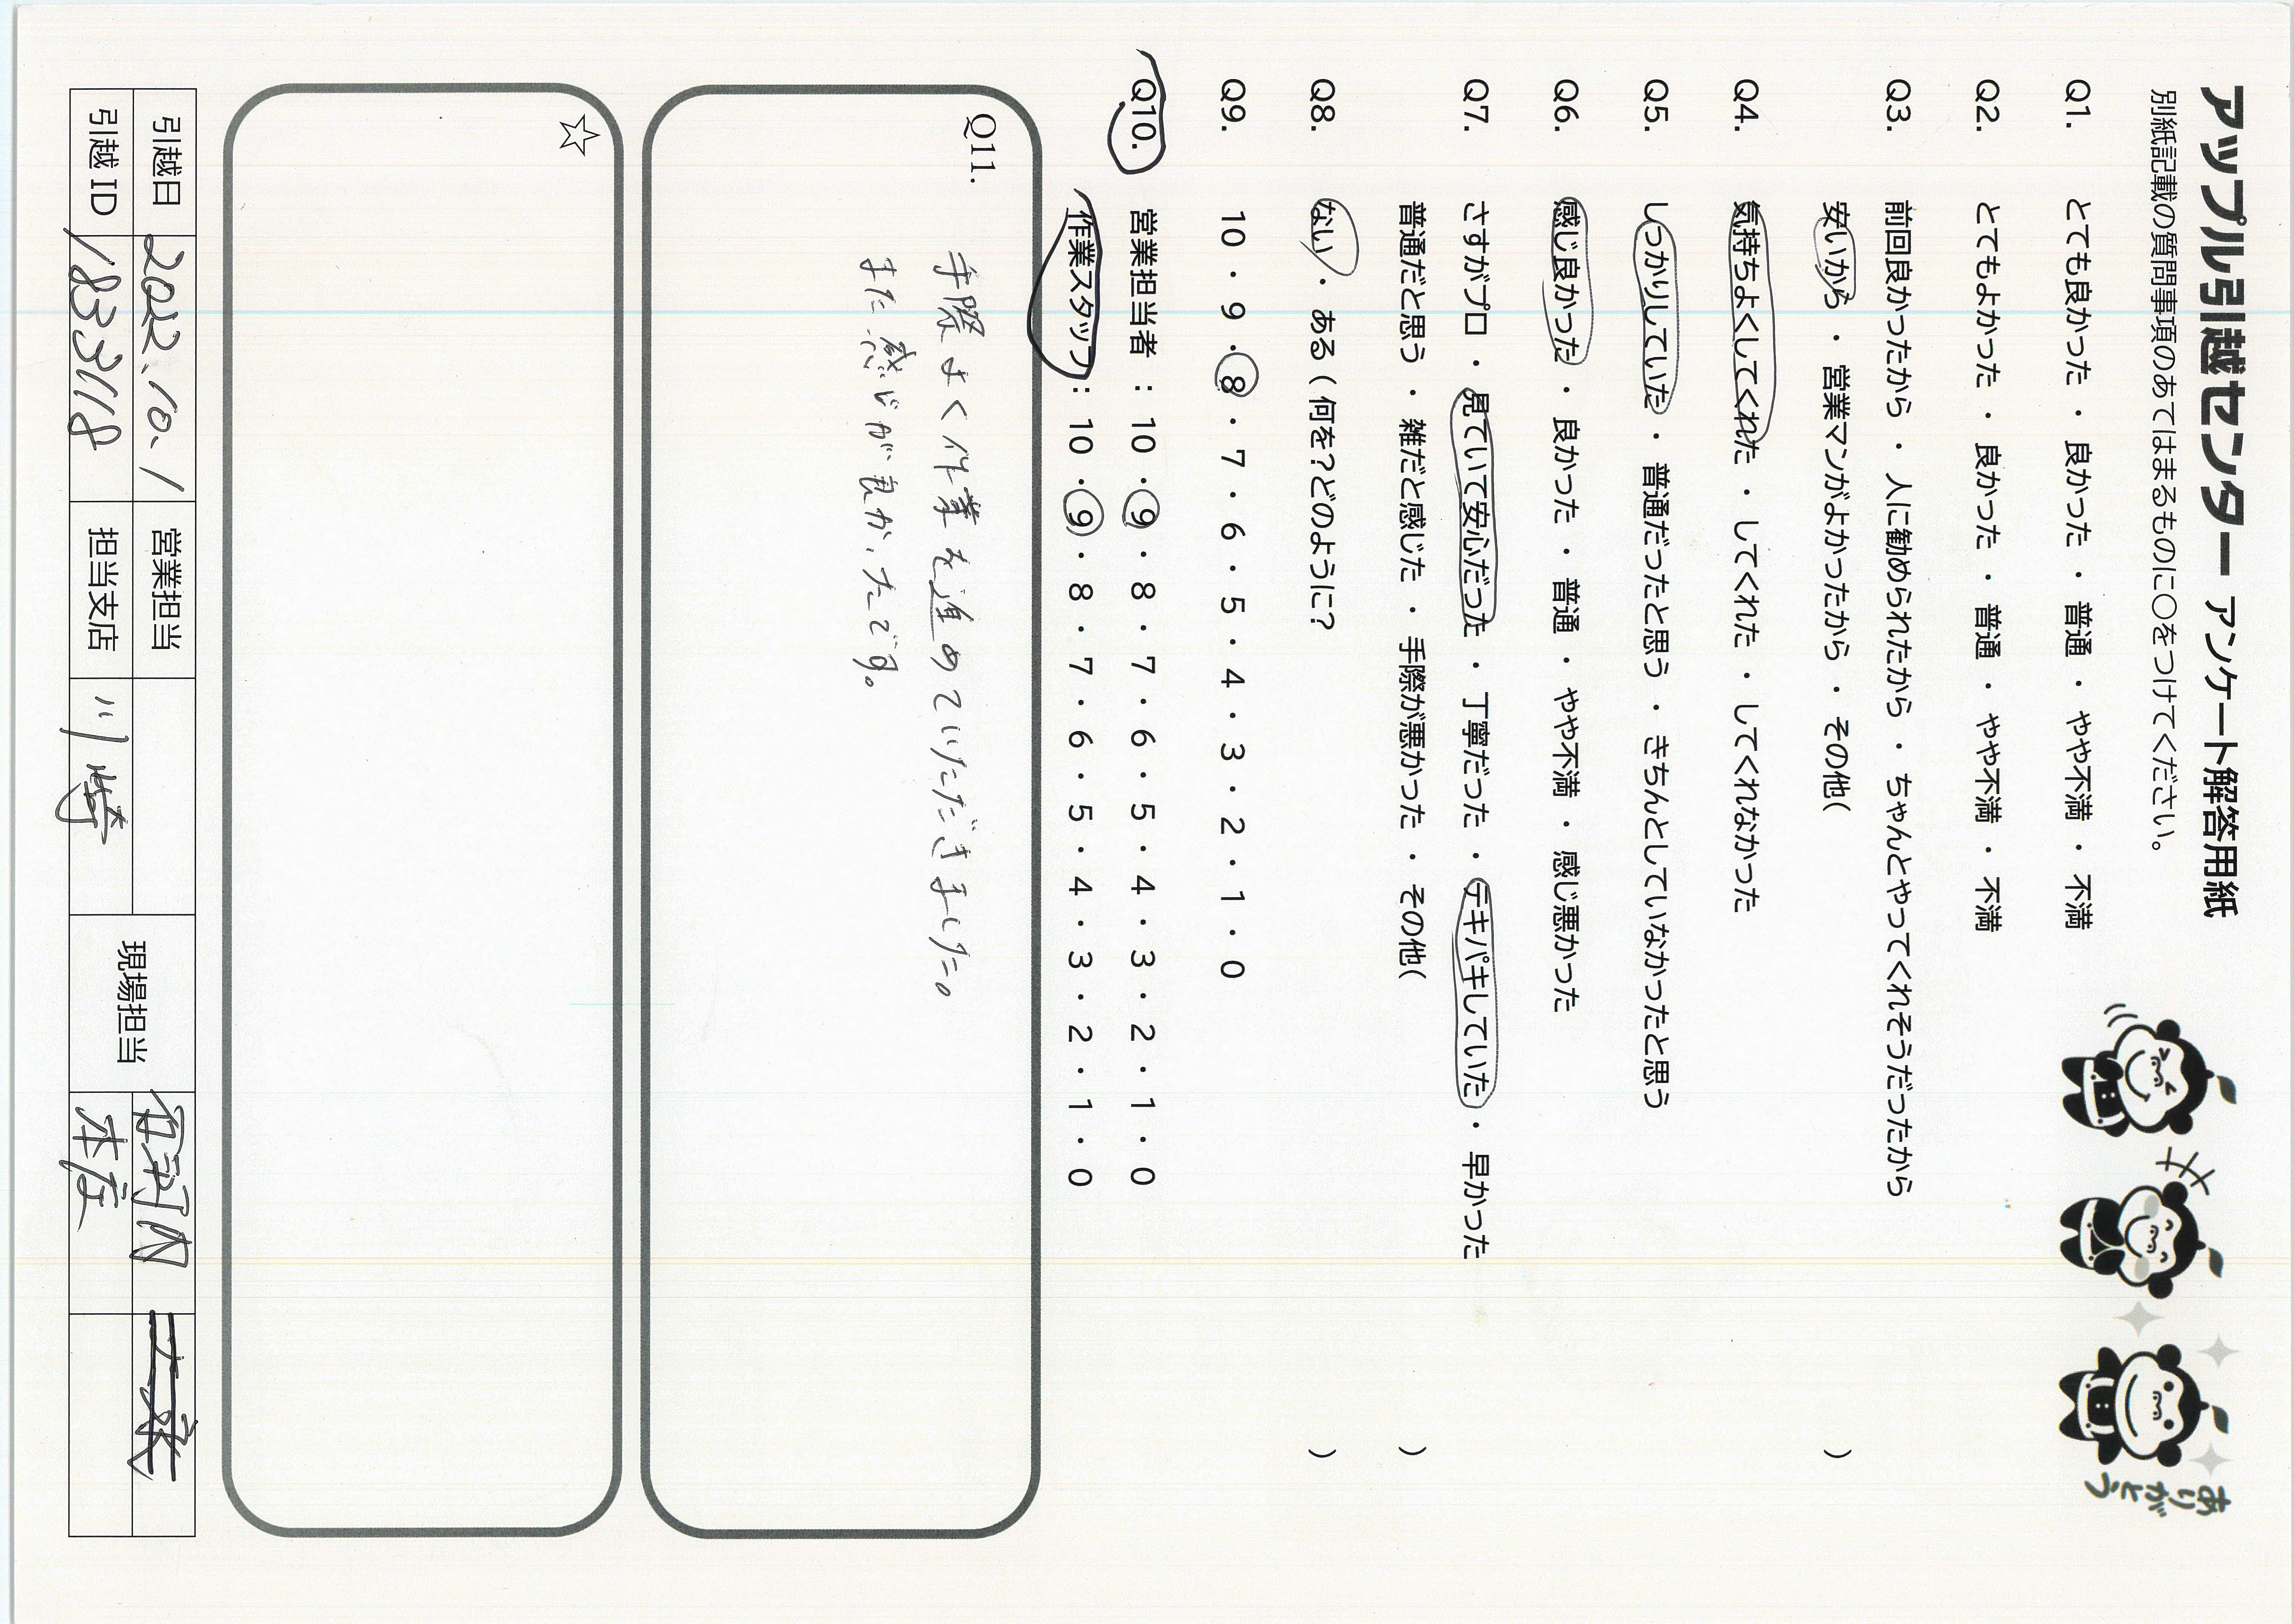 アップル引越センター アンケート解答用紙
別紙記載の質問事項のあてはまるものに○をつけてください。
Q1. とても良かった ・ 良かった ・ 普通 ・ やや不満 ・ 不満
Q2. とてもよかった ・ 良かった ・ 普通 ・ やや不満 ・ 不満
Q3. 前回良かったから ・ 人に勧められたから ・ ちゃんとやってくれそうだったから
安いから ・ 営業マンがよかったから ・ その他( )
Q4. 気持ちよくしてくれた ・ してくれた ・ してくれなかった
Q5. しっかりしていた ・ 普通だったと思う ・ きちんとしていなかったと思う
Q6. 感じ良かった ・ 良かった ・ 普通 ・ やや不満 ・ 感じ悪かった
Q7. さすがプロ ・ 見ていて安心だった ・ 丁寧だった ・ テキパキしていた ・ 早かった
普通だと思う ・ 雑だと感じた ・ 手際が悪かった ・ その他( )
Q8. ない ・ ある ( 何を?どのように? )
Q9. 10 ・ 9 ・ 8 ・ 7 ・ 6 ・ 5 ・ 4 ・ 3 ・ 2 ・ 1 ・ 0
Q10. 営業担当者 : 10 ・ 9 ・ 8 ・ 7 ・ 6 ・ 5 ・ 4 ・ 3 ・ 2 ・ 1 ・ 0
作業スタッフ : 10 ・ 9 ・ 8 ・ 7 ・ 6 ・ 5 ・ 4 ・ 3 ・ 2 ・ 1 ・ 0
Q11.
手際よく作業を進めていただきました。
また、感じが良かったです。
☆
引越日 2022.10.1 営業担当 現場担当
引越ID 1833118 担当支店 川崎
ありがとう